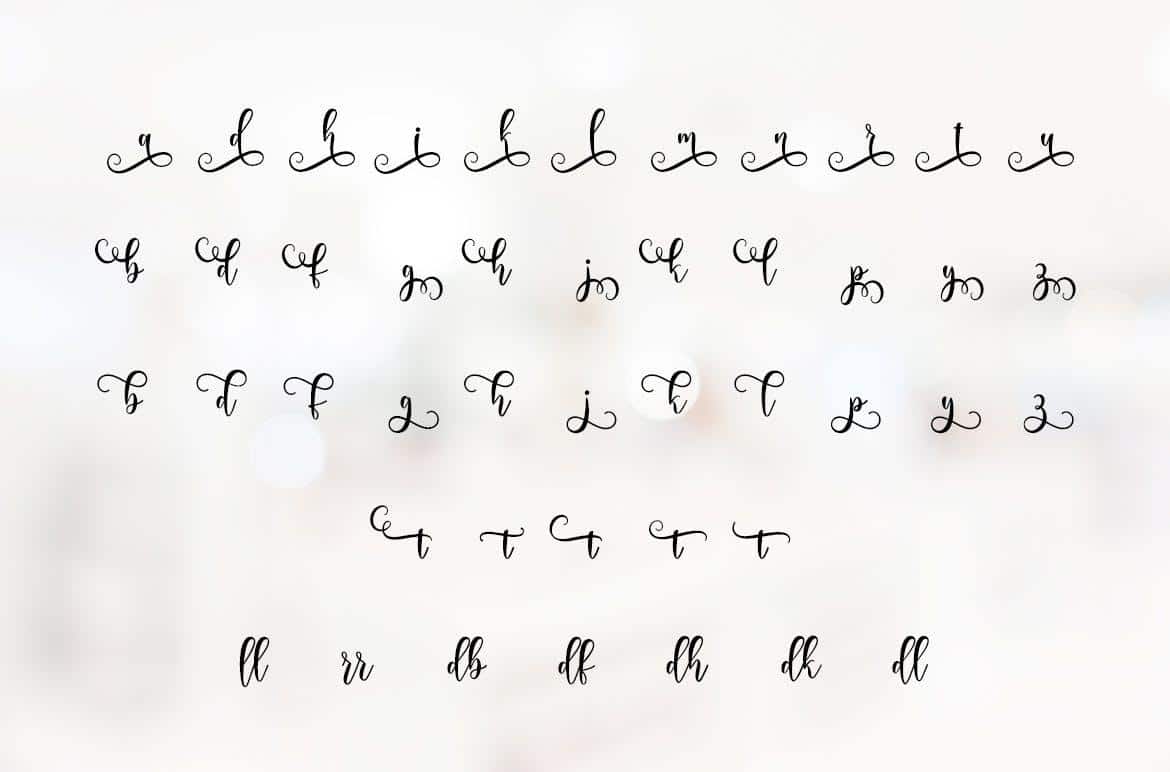 a d h i k l m n r t u
b d f g h j k l p y z
b d f g h j k l p y z
t t t t t
ll rr db df dh dk dl